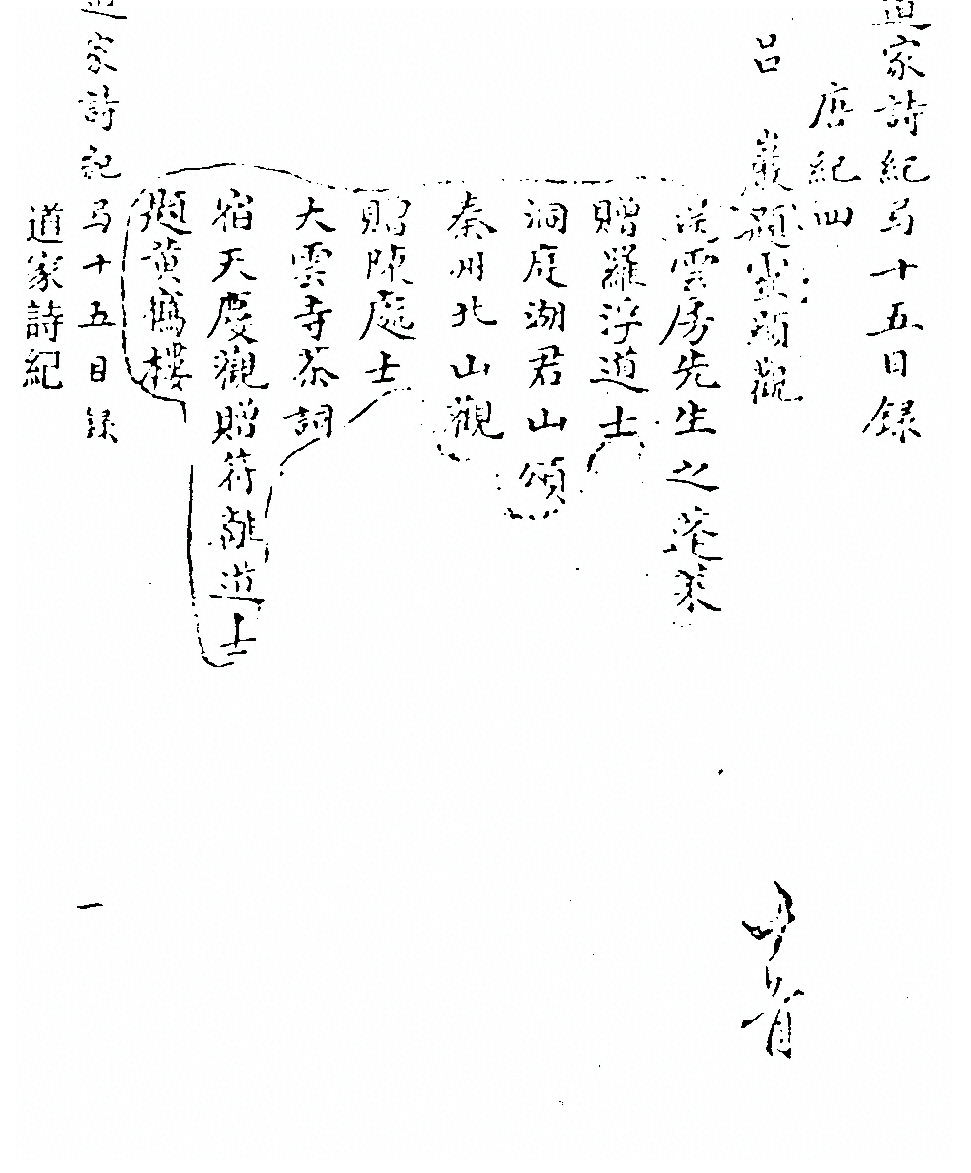 道家詩紀弓十五目録
唐紀仙
呂　巖
題空洞觀
送雲房先生之蓬萊
贈羅浮道士
洞庭湖君山頌
秦州北山觀
贈陳處士
大雲寺茶詞
宿天慶觀贈符離道士
題黄鶴樓
道家詩紀弓十五目録
一
道家詩紀